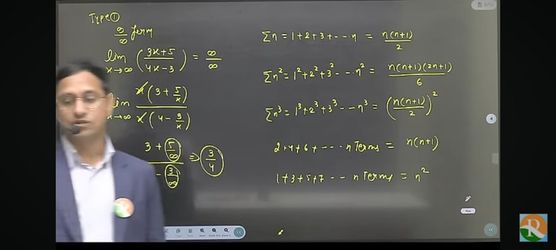 Type ①
∞/∞ form
lim x→∞ (3x+5 / 4x-3) = ∞/∞
lim x→∞ x(3 + 5/x) / x(4 - 3/x)
3 + 5/∞ / - 3/∞ => 3/4
Σn = 1+2+3+--- n = n(n+1)/2
Σn² = 1²+2²+3² --- n² = n(n+1)(2n+1)/6
Σn³ = 1³+2³+3³ --- n³ = (n(n+1)/2)²
2+4+6+ --- n Terms = n(n+1)
1+3+5+7 --- n Terms = n²